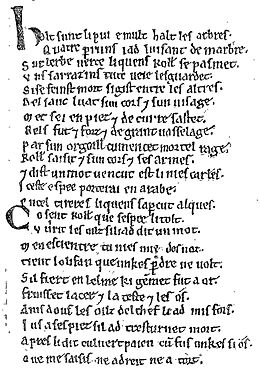 Halt sunt li pui e mult halt les arbres.
Quatre pruns i ad luisant de marbre.
Sur lerbe verte li quens Roll se pasmet.
Uns sarrazins tute veie lesguardet.
Si se feinst mort si gist entre les altres.
Del sanc luat sun cors ⁊ sun uisage.
Met sei en piez ⁊ de curre sastet.
Bels fut ⁊ forz ⁊ de grant vasselage.
Par sun orgoill cumencet mortel rage.
Roll saisit ⁊ sun cors ⁊ ses armes.
⁊ dist un mot uencut est li nies carles.
Iceste espee porterai en arabe.
En cel tireres li quens saperçut alques.
Co sent Roll que sespee li tolt.
Uurit les oilz si li ad dit un mot.
Men escientre tu nies mie des noz.
Tient lolifan que unkes pdre ne uolt.
Sil fiert en lelme ki gemet fut a or.
Fruisset lacer ⁊ la teste ⁊ les os.
Amsdous les oilz del chef li ad mis fors.
Jus a ses piez si lad tresturnet mort.
Apres li dit culuert paien cū fus unkes si os.
Que me saisis ne a dreit ne a tort.